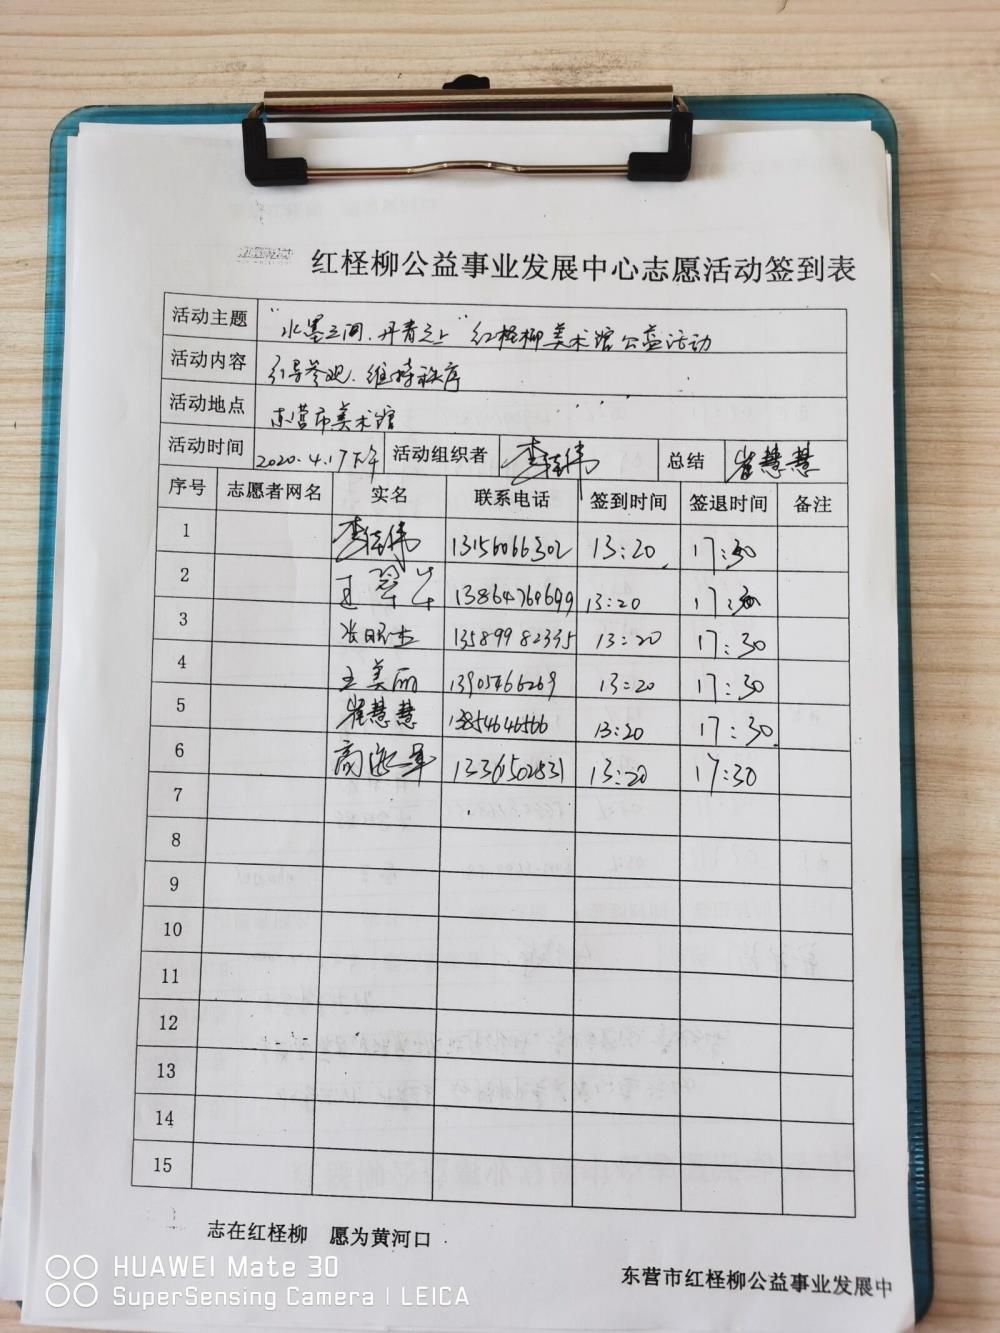 红柽柳公益事业发展中心志愿活动签到表
活动主题 "水墨之间.丹青之上"红柽柳美术馆公益活动
活动内容 引导参观.维持秩序
活动地点 东营市美术馆
活动时间 2020.4.17下午 活动组织者 总结 崔慧慧
序号 志愿者网名 实名 联系电话 签到时间 签退时间 备注
1 13156066302 13:20 17:30
2 13864764699 13:20 17:30
3 13589982335 13:20 17:30
4 王美丽 13905466269 13:20 17:30
5 崔慧慧 13854646566 13:20 17:30
6 高海军 13361502831 13:20 17:30
7
8
9
10
11
12
13
14
15
志在红柽柳 愿为黄河口
东营市红柽柳公益事业发展中
HUAWEI Mate 30
SuperSensing Camera | LEICA